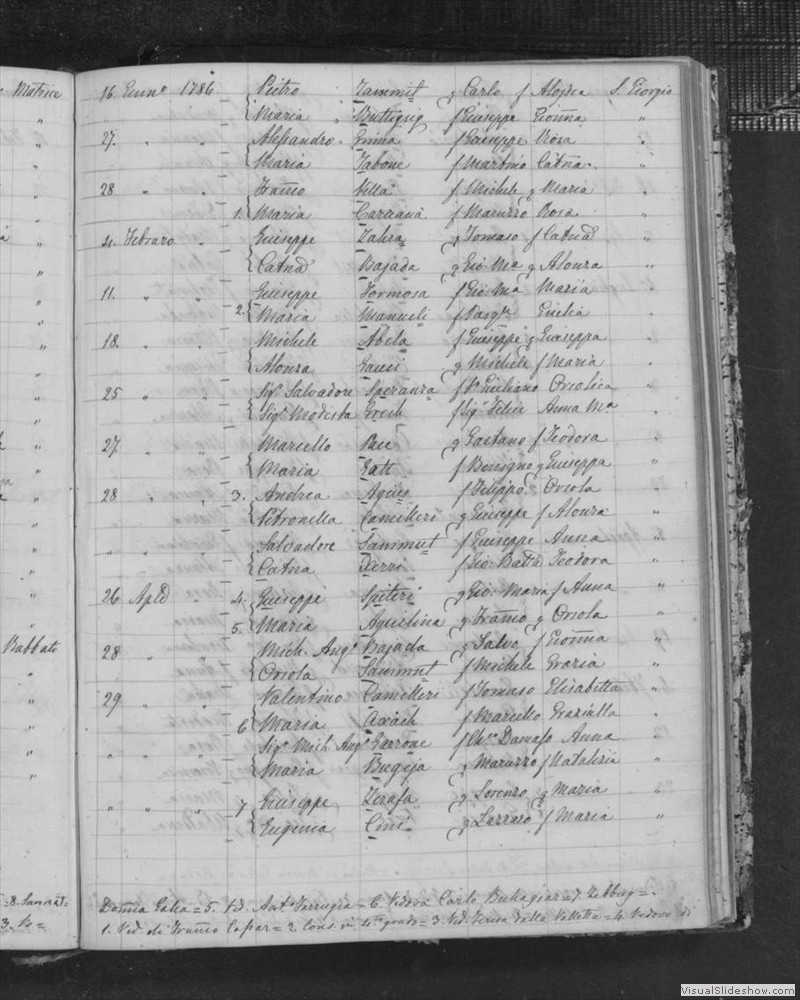 Matrice
16. Genn.o 1786 Pietro Zammit q Carlo f Aloisea S. Giorgio
Maria Buttigieg f Giuseppe Gioanna "
27. " " Alessandro Emma f Giuseppe Rosa "
Maria Tabone f Martino Catna. "
28 " " Franco Vella f Michele q Maria "
1. Maria Caruana f Maruzzo Rosa "
4. Febraro " Giuseppe Zahra q Tomaso f Catna "
Catna Bajada q Gio: Ma q Alonza "
11. " " Giuseppe Formosa f Gio: Ma Maria "
2. Maria Manueli f Pasqle Giulia "
18. " " Michele Abela f Giuseppe q Giuseppa "
Alonza Gauci q Michele f Maria "
25 " " Sigr Salvadore Speranza f Giuliano Orsolica "
Siga Modesta Grech f Sigr Felice Anna Ma "
27. " " Marcello Pace q Gaetano f Teodora "
Maria Gatt f Benigno q Giuseppa "
28 " " 3. Andrea Agius f Filippo Orsola "
Petronella Camilleri q Giuseppe f Alonza "
" " " Salvadore Sammut f Giuseppe Anna "
Catna Xerri f Gio: Batta Teodora "
26 Aple 4. Giuseppe Spiteri q Gio: Maria f Anna "
5. Maria Agostina q Franco q Orsola "
Babbati
28 " Mich. Angο Bajada q Salvo f Gioanna "
Orsola Sammut f Michele Grazia "
29 " Valentino Camilleri f Tomaso Elisabetta "
6 Maria Axiach f Marcello Graziulla "
Sigr Mich. Ango Garrone f Damaso Anna "
Maria Bugeja q Maruzzo f Natalizia "
" " " 7 Giuseppe Zerafa q Lorenzo q Maria "
Eugenia Cini q Lazzaro f Maria "
8. Sannat
Donna = 5. Vd. Anto Farrugia = 6. Vedova Carlo Buhagiar = 7 Zebbug =.
1. Ved. di Franco = 2. Cons. in 4to grado = 3. Ved. Teresa dalla Valletta = 4. Vedovo di
VisualSlideshow.com